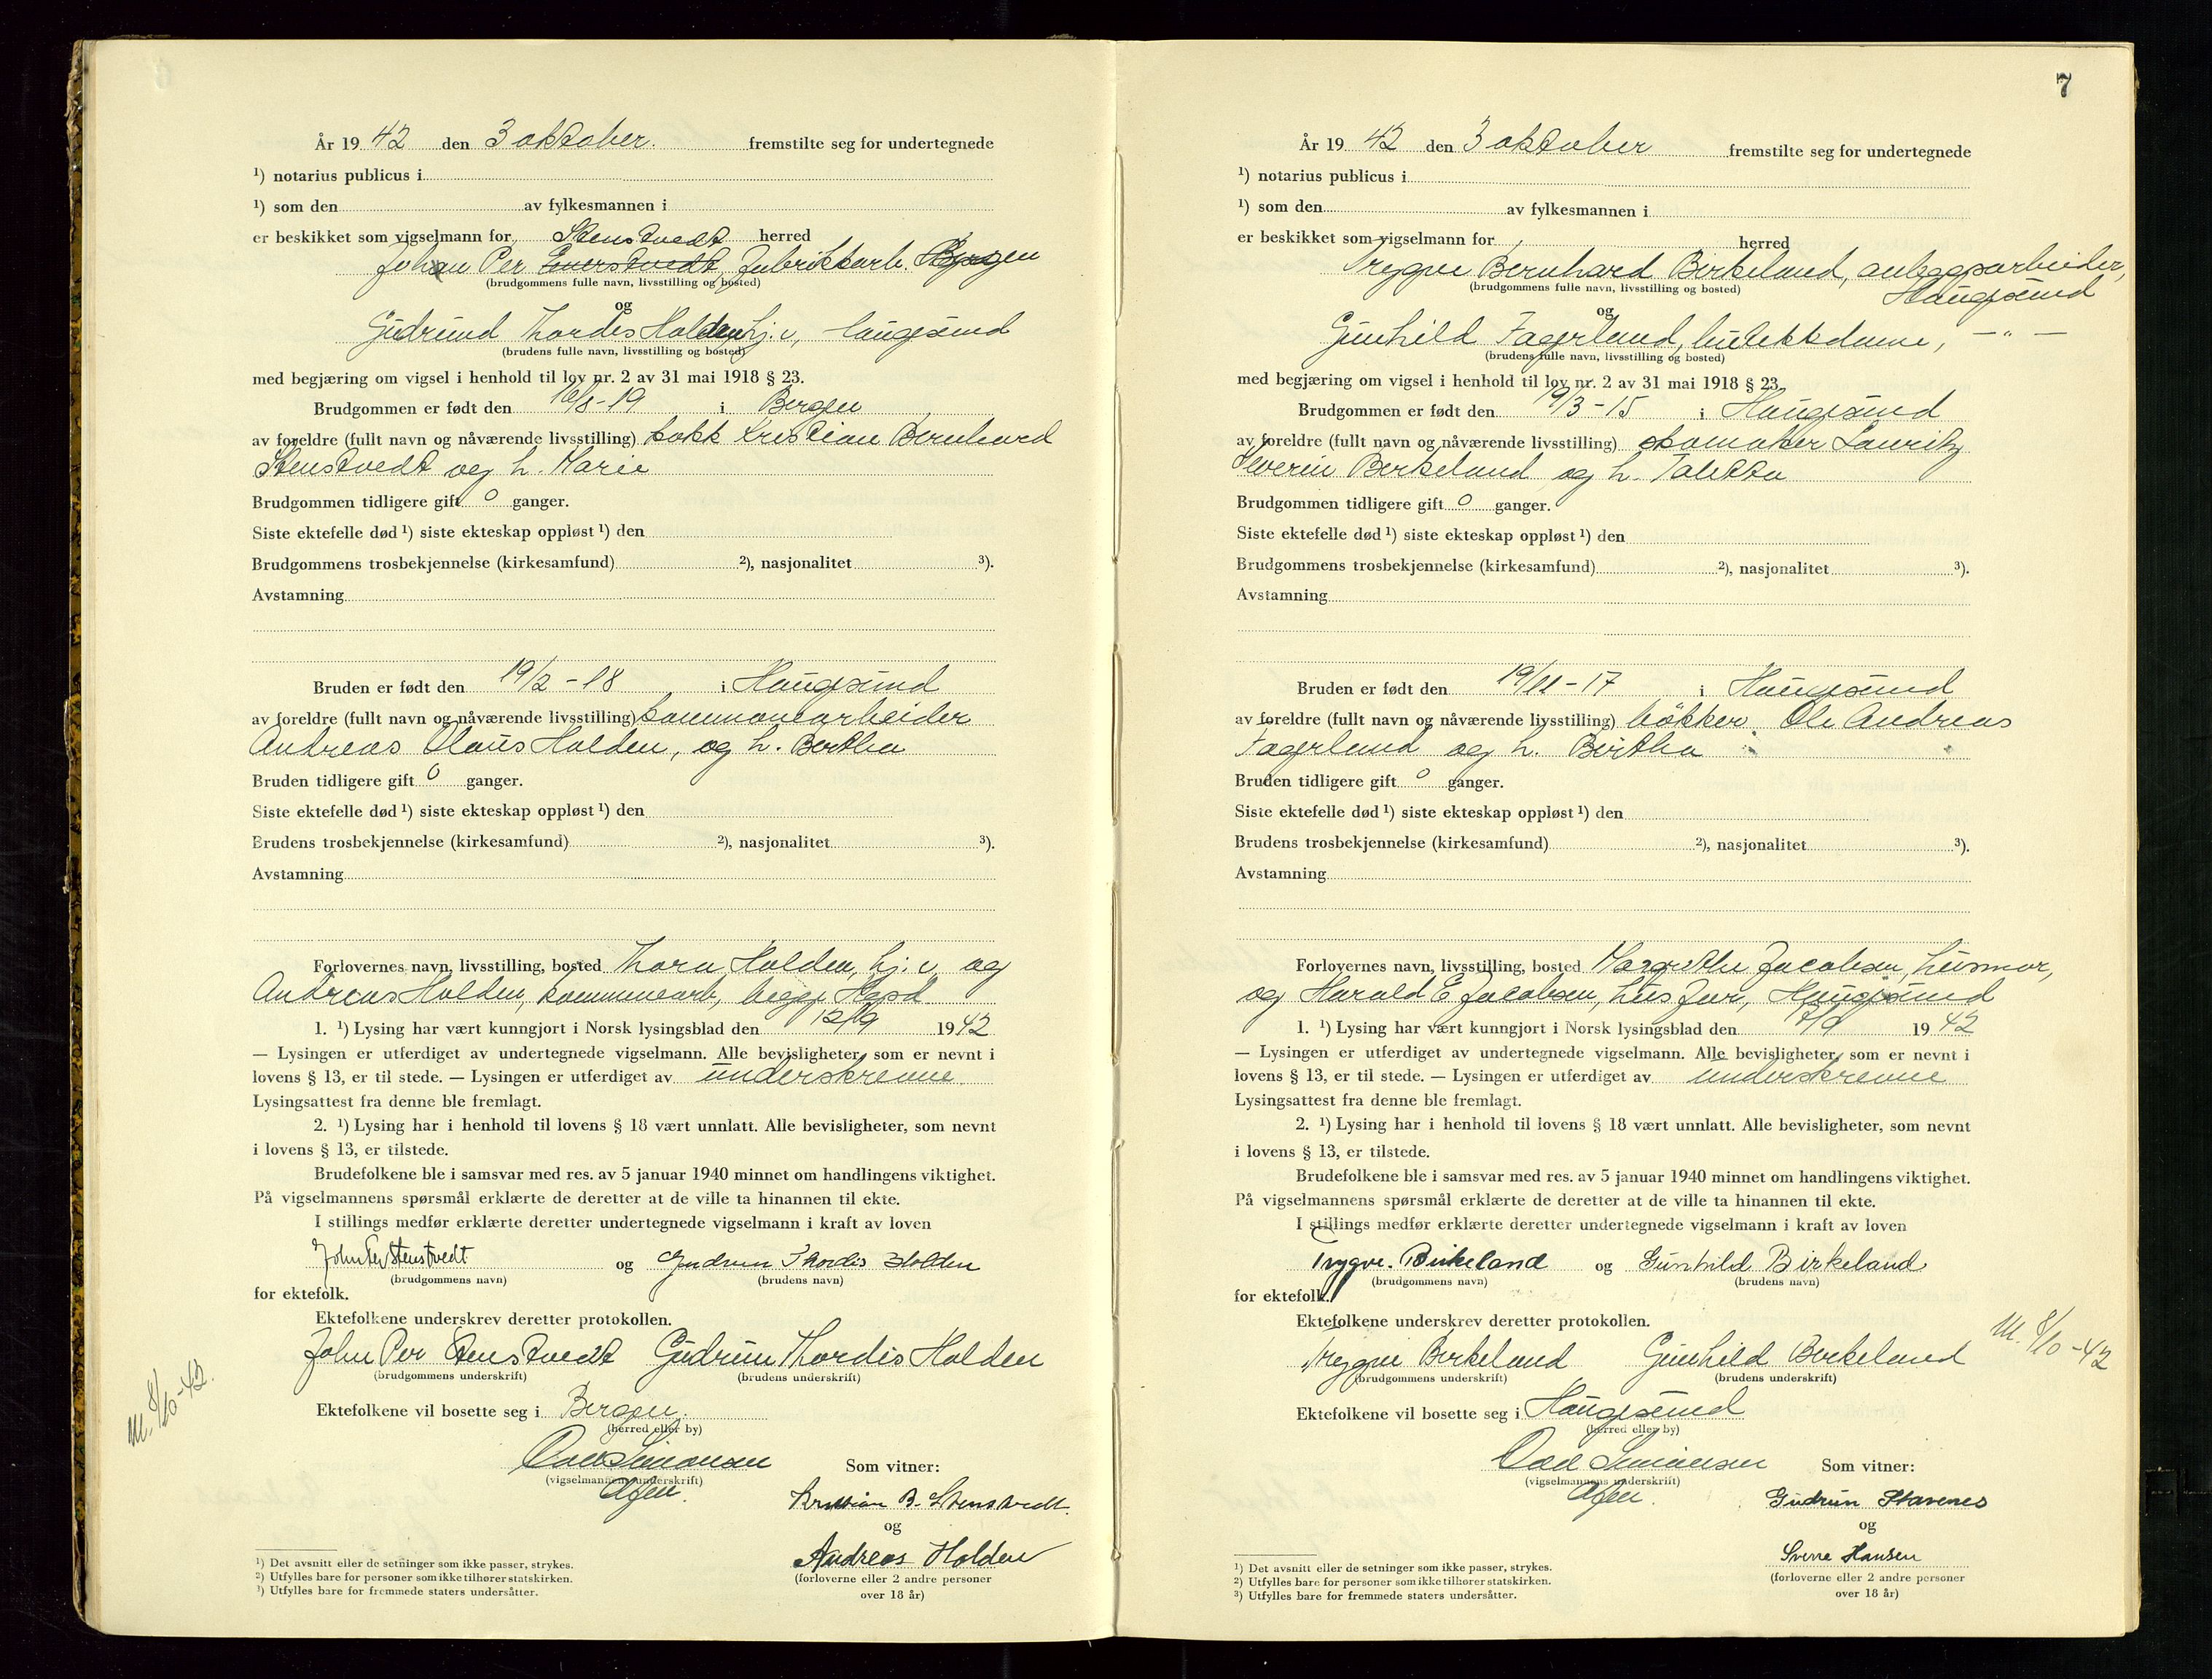 År 19 42 den 3 oktober. fremstilte seg for undertegnede
¹) notarius publicus i
¹) som den av fylkesmannen i
er beskikket som vigselmann for Stenstvedt herred
Johan Per fabrikkarb. Bergen
(brudgommens fulle navn, livsstilling og bosted)
og
Gudrund Thordis Holden hj. v, Haugesund
(brudens fulle navn, livsstilling og bosted)
med begjæring om vigsel i henhold til lov nr. 2 av 31 mai 1918 § 23.
Brudgommen er født den 16/8-19 i Bergen
av foreldre (fullt navn og nåværende livsstilling) kokk Kristian Bernhard
Stenstvedt og h. Marie
Brudgommen tidligere gift 0 ganger.
Siste ektefelle død ¹) siste ekteskap oppløst ¹) den
Brudgommens trosbekjennelse (kirkesamfund) ²), nasjonalitet ³).
Avstamning
Bruden er født den 19/2-18 i Haugesund
av foreldre (fullt navn og nåværende livsstilling) kommunearbeider
Andreas Olaus Holden, og h. Bertha
Bruden tidligere gift 0 ganger.
Siste ektefelle død ¹) siste ekteskap oppløst ¹) den
Brudens trosbekjennelse (kirkesamfund) ²), nasjonalitet ³).
Avstamning
Forlovernes navn, livsstilling, bosted Thora Holden, hj. v, og
Andreas Holden, kommunearb, begge Hgsd.
1. ¹) Lysing har vært kunngjort i Norsk lysingsblad den 12/9 1942
— Lysingen er utferdiget av undertegnede vigselmann. Alle bevisligheter, som er nevnt i
lovens § 13, er til stede. — Lysingen er utferdiget av underskrevne
Lysingsattest fra denne ble fremlagt.
2. ¹) Lysing har i henhold til lovens § 18 vært unnlatt. Alle bevisligheter, som nevnt
i lovens § 13, er tilstede.
Brudefolkene ble i samsvar med res. av 5 januar 1940 minnet om handlingens viktighet.
På vigselmannens spørsmål erklærte de deretter at de ville ta hinannen til ekte.
I stillings medfør erklærte deretter undertegnede vigselmann i kraft av loven
John Per Stenstvedt og Gudrun Thordis Holden
(brudgommens navn) (brudens navn)
for ektefolk.
Ektefolkene underskrev deretter protokollen.
John Per Stenstvedt Gudrun Thordis Holden
(brudgommens underskrift) (brudens underskrift)
M. 8/10-42.
Ektefolkene vil bosette seg i Bergen.
(herred eller by)
Simonsen Som vitner:
(vigselmannens underskrift)
Kristian B. Stenstvedt.
og
Andreas Holden
(forloverne eller 2 andre personer
over 18 år)
¹) Det avsnitt eller de setninger som ikke passer, strykes.
²) Utfylles bare for personer som ikke tilhører statskirken.
³) Utfylles bare for fremmede staters undersåtter.
7
År 19 42 den 3 oktober fremstilte seg for undertegnede
¹) notarius publicus i
¹) som den av fylkesmannen i
er beskikket som vigselmann for herred
Trygve Bernhard Birkeland, anleggsarbeider,
(brudgommens fulle navn, livsstilling og bosted) Haugesund
og
Gunhild Fagerland, butikkdame, — " —
(brudens fulle navn, livsstilling og bosted)
med begjæring om vigsel i henhold til lov nr. 2 av 31 mai 1918 § 23.
Brudgommen er født den 19/3-15 i Haugesund
av foreldre (fullt navn og nåværende livsstilling) skomaker Lauritz
Severin Birkeland og h. Taletta
Brudgommen tidligere gift 0 ganger.
Siste ektefelle død ¹) siste ekteskap oppløst ¹) den
Brudgommens trosbekjennelse (kirkesamfund) ²), nasjonalitet ³).
Avstamning
Bruden er født den 19/11-17 i Haugesund
av foreldre (fullt navn og nåværende livsstilling) bökker Ole Andreas
Fagerland og h. Birtha
Bruden tidligere gift 0 ganger.
Siste ektefelle død ¹) siste ekteskap oppløst ¹) den
Brudens trosbekjennelse (kirkesamfund) ²), nasjonalitet ³).
Avstamning
Forlovernes navn, livsstilling, bosted Margrethe Jacobsen, husmor,
og Harald E Jacobsen, husfar, Haugesund
1. ¹) Lysing har vært kunngjort i Norsk lysingsblad den 7/9 1942
— Lysingen er utferdiget av undertegnede vigselmann. Alle bevisligheter, som er nevnt i
lovens § 13, er til stede. — Lysingen er utferdiget av underskrevne
Lysingsattest fra denne ble fremlagt.
2. ¹) Lysing har i henhold til lovens § 18 vært unnlatt. Alle bevisligheter, som nevnt
i lovens § 13, er tilstede.
Brudefolkene ble i samsvar med res. av 5 januar 1940 minnet om handlingens viktighet.
På vigselmannens spørsmål erklærte de deretter at de ville ta hinannen til ekte.
I stillings medfør erklærte deretter undertegnede vigselmann i kraft av loven
Trygve. Birkeland og Gunhild Birkeland
(brudgommens navn) (brudens navn)
for ektefolk.
Ektefolkene underskrev deretter protokollen.
Trygve Birkeland Gunhild Birkeland M. 8/10-42
(brudgommens underskrift) (brudens underskrift)
Ektefolkene vil bosette seg i Haugesund
(herred eller by)
Simonsen Som vitner:
(vigselmannens underskrift)
Gudrun Stavenes
og
Sverre Hansen
(forloverne eller 2 andre personer
over 18 år)
¹) Det avsnitt eller de setninger som ikke passer, strykes.
²) Utfylles bare for personer som ikke tilhører statskirken.
³) Utfylles bare for fremmede staters undersåtter.